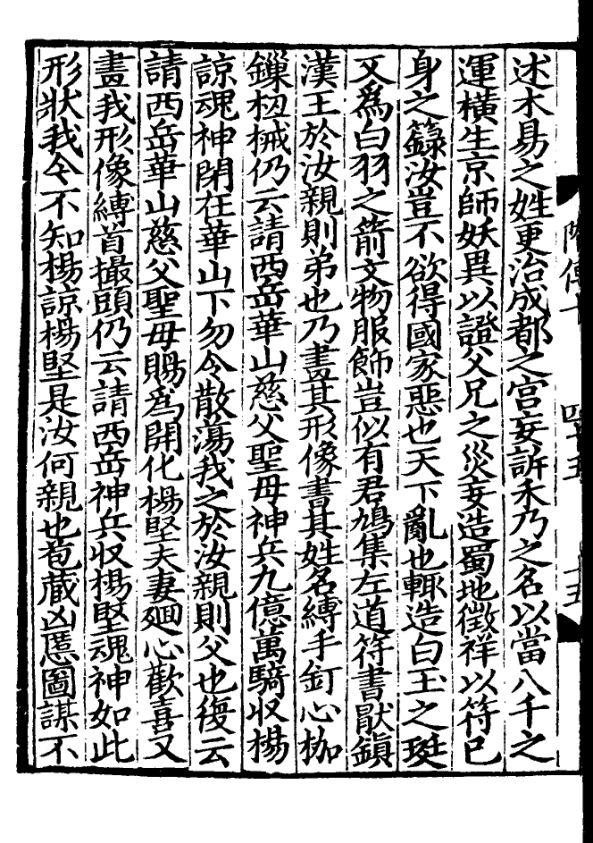 述木易之姓更治成都之宫妄訴禾乃之名以當八千之
運橫生京師妖異以證父兄之災妄造蜀地徵祥以符已
身之籙汝豈不欲得國家惡也天下亂也輒造白玉之珽
又爲白羽之箭文物服飾豈似有君鳩集左道符書厭鎮
漢王於汝親則弟也乃畫其形像書其姓名縛手釘心枷
鏁杻械仍云請西岳華山慈父聖母神兵九億萬騎収楊
諒魂神閉在華山下勿令散蕩我之於汝親則父也復云
請西岳華山慈父聖母賜爲開化楊堅夫妻廻心歡喜又
畫我形像縛首撮頭仍云請西岳神兵収楊堅魂神如此
形狀我今不知楊諒楊堅是汝何親也苞藏凶慝圖謀不